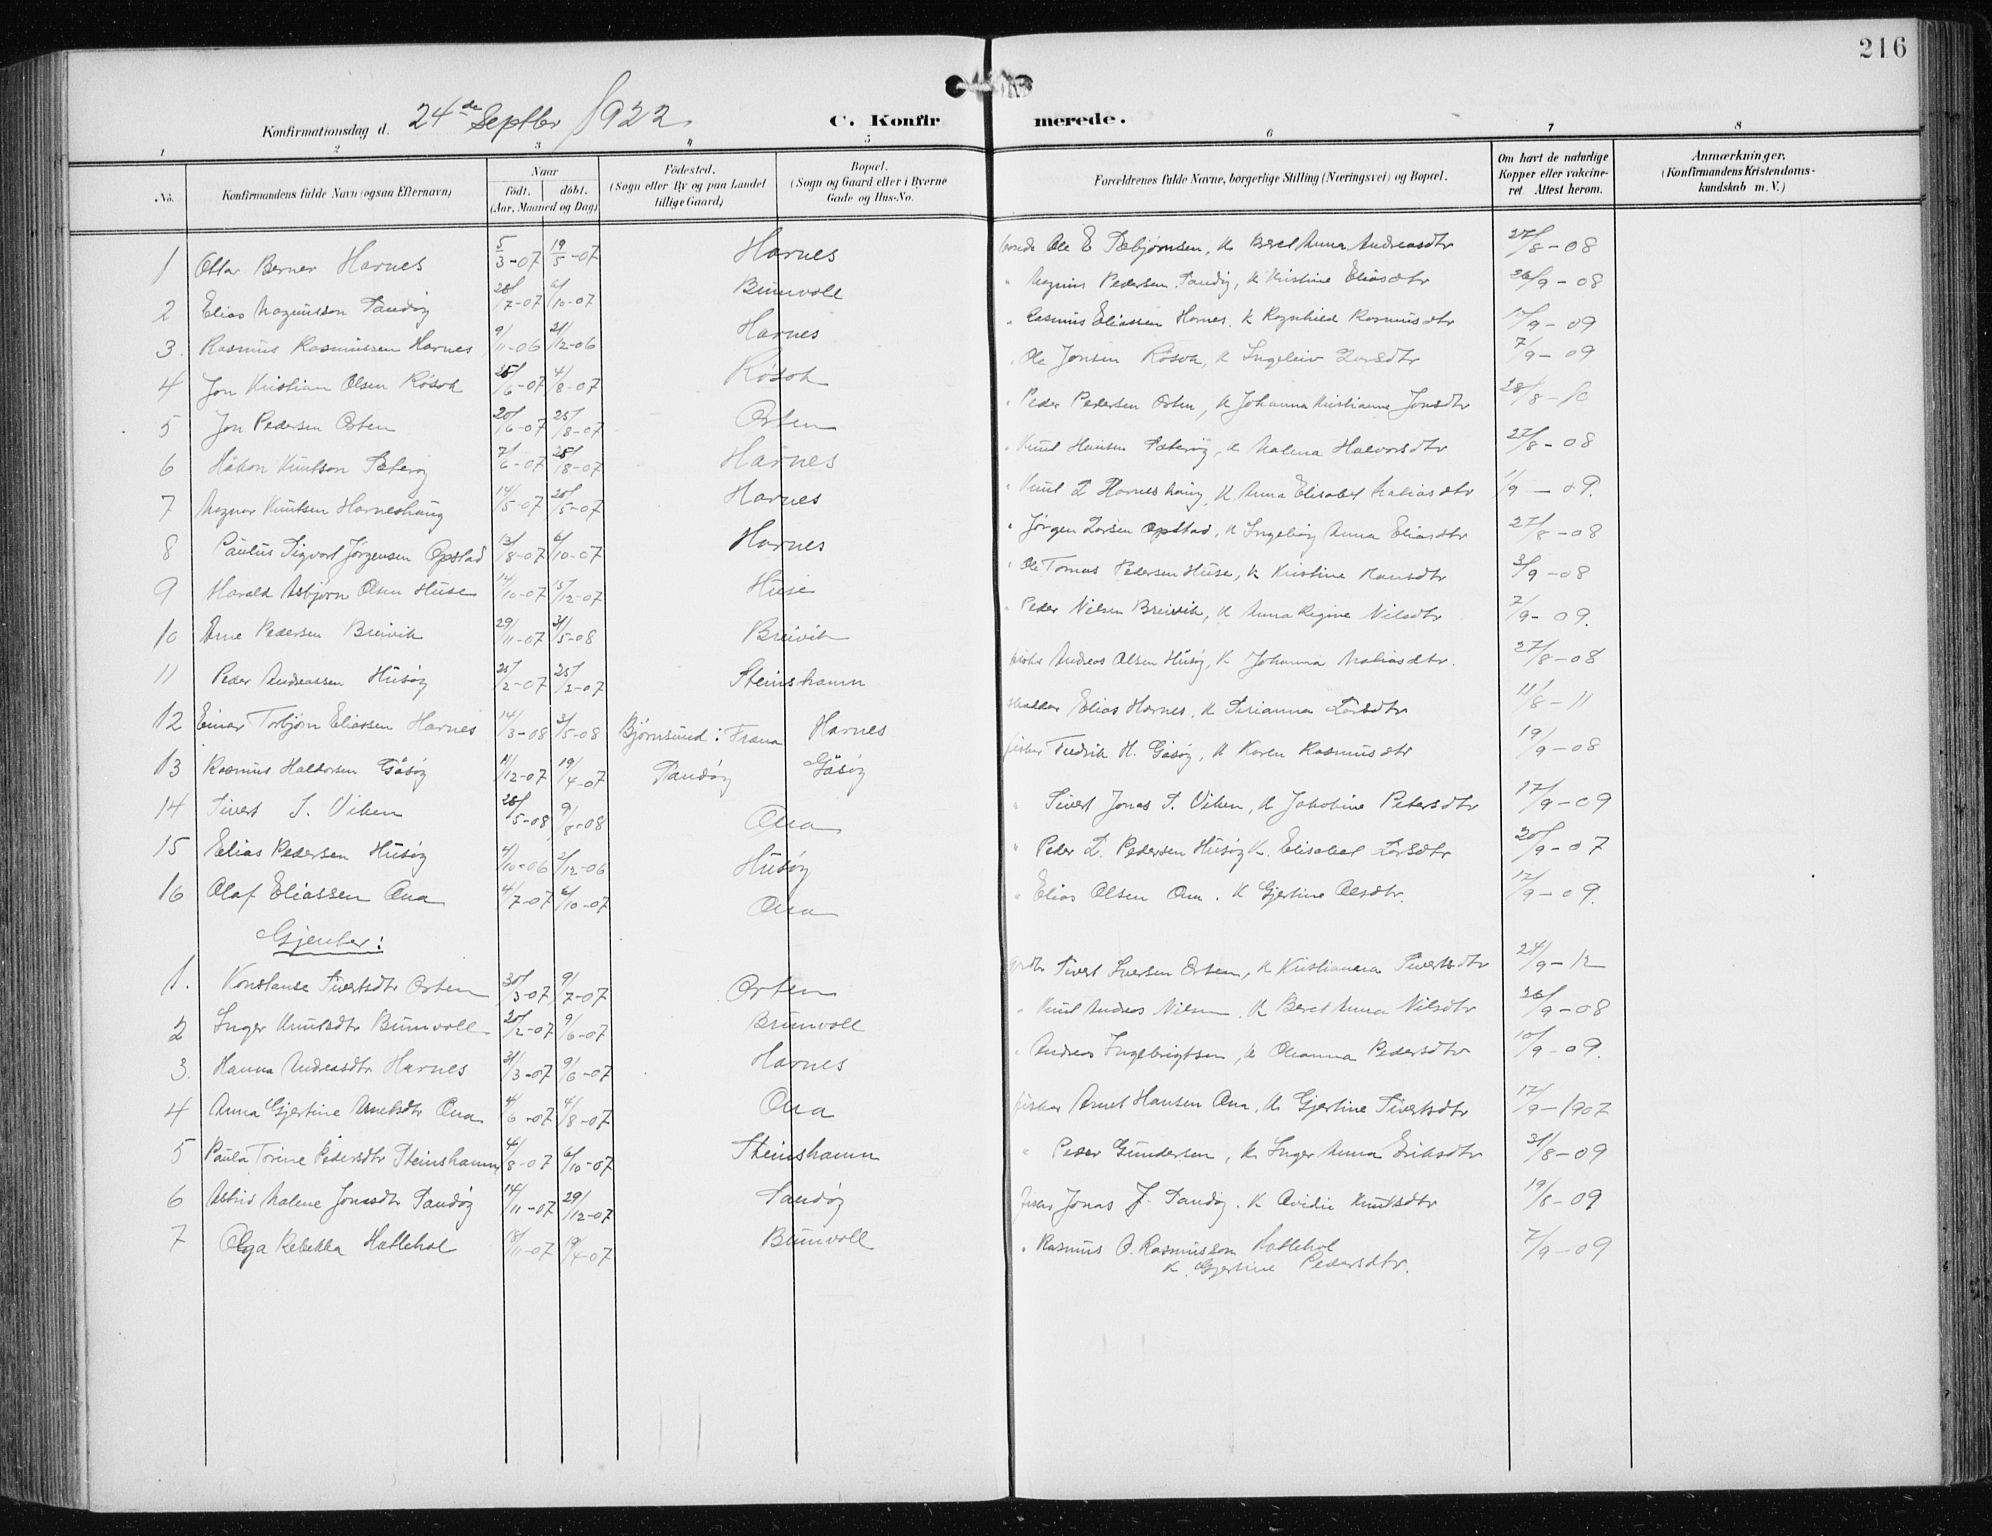 216
Konfirmationsdag d. 24de Septbr 1922 C. Konfir merede.
1 2 3 4 5 6 7 8
No. Konfirmandens fulde Navn (ogsaa Efternavn) Naar födt. döbt. (Aar, Maaned og Dag) Födested. (Sogn eller By og paa Landet tillige Gaard) Bopæl. (Sogn og Gaard eller i Byerne Gade og Hus-No. Forældrenes fulde Navne, borgerlige Stilling (Næringsvei) og Bopæl. Om havt de naturlige Kopper eller vakcineret. Attest herom. Anmærkninger. (Konfirmandens Kristendomskundskab m. V.)
1 Ottar Berner Harnes 5/3-07 19/5-07 Harnes bonde Ole E Sæbjørnsen, K Beret Anna Andreasdtr 27/8-08
2 Elias Magnusson Sandøy 28/7-07 6/10-07 Brunvoll " Magnus Pedersen Sandøy, K Kristine Eliasdtr 26/9-08
3. Rasmus Rasmussen Harnes 9/11-06 21/12-06 Harnes " Rasmus Eliassen Harnes. K Ragnhild Rasmusdtr 17/9-09
4 Jon Kristian Olsen Røsok 25/6-07 4/8-07 Røsok " Ole Jonsen Røsok, K Ingeleiv Larsdtr 7/9-09
5 Jon Pedersen Orten 20/6-07 25/8-07 Orten " Peder Pedersen Orten, K Johanna Kristianne Jonsdtr 28/8-10
6 Håkon Knutson Sæterøy 7/6-07 25/8-07 Harnes " Knut Hansen Sæterøy, K Malena Halvorsdtr 27/8-08
7 Magnar Knutsen Harneshaug 14/5-07 20/5-07 Harnes " Knut L Harneshaug, K. Anna Elisabet Matiasdtr 1/9-09.
8 Paulus Sigvart Jørgensen Opstad 13/8-07 6/10-07 Harnes " Jørgen Larsen Opstad, K Ingebørg Anna Eliasdtr 27/8-08
9 Harald Asbjørn Olsen Huse 14/10-07 15/12-07 Huse " Ole Tomas Pedersen Huse, K Kristine Hansdtr 3/9-08
10 Arne Pedersen Breivik 29/11-07 31/5-08 Breivik " Peder Nilsen Breivik, K Anna Regine Nilsdtr 7/9-09.
11 Peder Andreassen Husøy 25/2-07 25/2-07 Steinshamn fisker Andreas Olsen Husøy, K Johanna Matiasdtr. 27/8-08
12 Einar Torbjørn Eliassen Harnes 14/3-08 3/5-08 Bjørnsund i Fræna Harnes Elias Harnes, K Serianna Larsdtr 11/8-11
13 Rasmus Haldorsen Gåsøy 11/12-07 19/4-07 Sandøy Gåsøy fisker Fredrik H. Gåsøy, K Karen Rasmusdtr 19/9-08
14 Sivert S. Viken 28/5-08 9/8-08 Ona " Sivert Jonas S. Viken, K Jakobine Petersdtr 17/9-09
15 Elias Pedersen Husøy 4/10-06 2/12-06 Husøy " Peder L. Pedersen Husøy K. Elisabet Larsdtr 20/9-07
16 Olaf Eliassen Ona 4/7-07 6/10-07 Ona " Elias Olsen Ona. K Gjertine Olsdtr. 17/9-09.
Gjenter:
1. Konstanse Sivertsdtr Orten 30/3-07 9/7-07 Orten Sivert Iversen Orten, K Kristianna Sivertsdtr 24/9-12
2 Inger Knutsdtr Brunvoll 20/2-07 9/6-07 Brunvoll " Knut Andreas Nilsen, K Beret Anna Nilsdtr 26/9-08
3. Hanna Andreasdtr Harnes 31/3-07 9/6-07 Harnes " Andreas Ingebrigtsen, K Oleanna Pedersdtr 10/9-09.
4 Anna Gjertine Arnetsdtr Ona 4/6-07 4/8-07 Ona fisker Arnet Hansen Ona, K. Gjertine Sivertsdtr 17/9-1907
5 Paula Torine Pedersdtr Steinshamn 4/8-07 6/10-07 Steinshamn " Peder Gundersen, K Inger Anna Eriksdtr 31/8-09
6 Astrid Malene Jonasdtr Sandøy 14/11-07 29/12-07 Sandøy fisker Jonas J. Sandøy. K Ovidie Knutsdtr 19/8-09
7 Olga Rebekka Hattehol 18/11-07 19/4-07 Brunvoll " Rasmus O. Rasmusson Hattehol 7/9-09
K. Gjertine Pedersdtr.